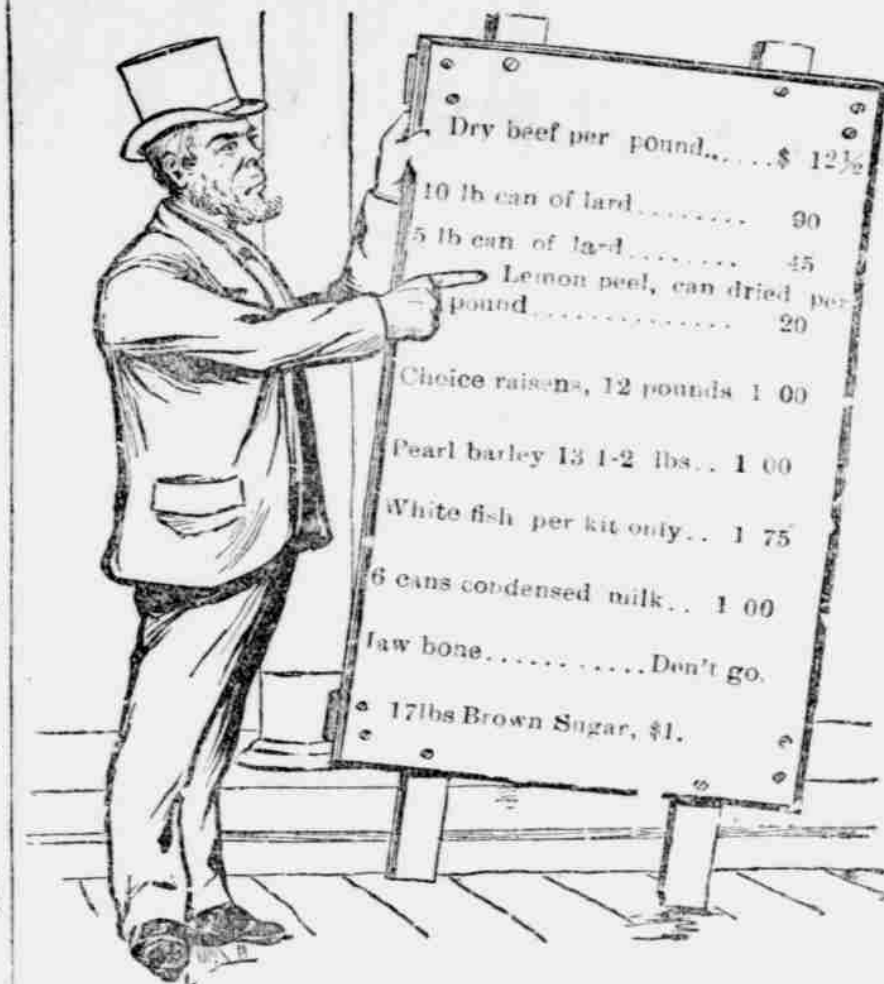 Dry beef per pound.......$ 12½
10 lb can of lard........ 90
5 lb can of lard........ 45
Lemon peel, can dried per
pound............... 20
Choice raisens, 12 pounds 1 00
Pearl barley 13 1-2 lbs.. 1 00
White fish per kit only.. 1 75
6 cans condensed milk.. 1 00
Jaw bone............Don't go.
17lbs Brown Sugar, $1.